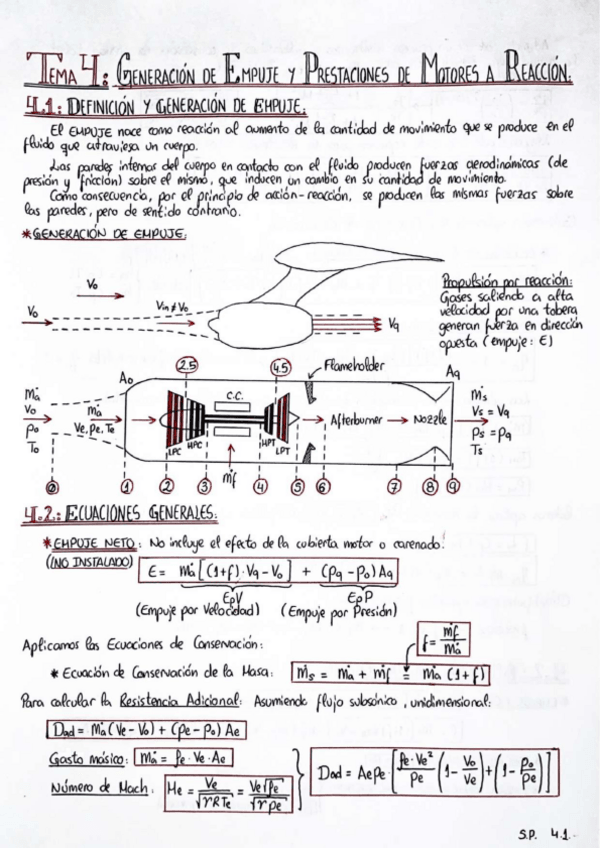 TEMA 4: GENERACIÓN DE EMPUJE Y PRESTACIONES DE MOTORES A REACCIÓN.
4.1: DEFINICIÓN Y GENERACIÓN DE EMPUJE.
El EMPUJE nace como reacción al aumento de la cantidad de movimiento que se produce en el
fluido que atraviesa un cuerpo.
Las paredes internas del cuerpo en contacto con el fluido producen fuerzas aerodinámicas (de
presión y fricción) sobre el mismo, que inducen un cambio en su cantidad de movimiento.
Como consecuencia, por el principio de acción-reacción, se producen las mismas fuerzas sobre
las paredes, pero de sentido contrario.
*GENERACIÓN DE EMPUJE.
V₀
V₀
Vin ≠ V₀
V9
Propulsión por reacción:
Gases saliendo a alta
velocidad por una tobera
generan fuerza en dirección
opuesta (empuje: E)
A₀
2.5
4.5
Flameholder
A9
ṁa
V₀
p₀
T₀
ṁa
Ve, pe, Te
LPC
HPC
C.C.
ṁf
HPT
LPT
Afterburner
Nozzle
ṁs
Vs = V9
ps = p9
Ts
0 1 2 3 4 5 6 7 8 9
4.2: ECUACIONES GENERALES.
*EMPUJE NETO: No incluye el efecto de la cubierta motor o carenado!
(NO INSTALADO)
E = ṁa[(1+f)·V9 - V₀] + (p9 - p₀)A9
EpV
EpP
(Empuje por Velocidad) (Empuje por Presión)
f = ṁf/ṁa
Aplicamos las Ecuaciones de Conservación:
* Ecuación de Conservación de la Masa: ṁs = ṁa + ṁf = ṁa(1+f)
Para calcular la Resistencia Adicional: Asumiendo flujo subsónico, unidimensional:
Dad = ṁa(Ve - V₀) + (pe - p₀)Ae
Gasto másico: ṁa = ρe·Ve·Ae
Número de Mach: Me = Ve/√(γRTe) = Ve√ρe/√(γpe)
Dad = Ae pe·[ρe·Ve²/pe (1 - V₀/Ve) + (1 - p₀/pe)]
S.P. 4.1.-